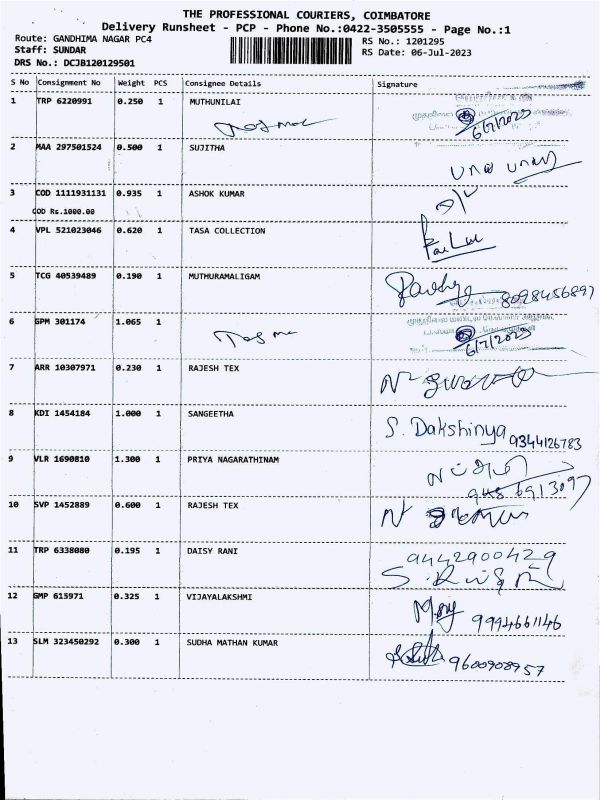 THE PROFESSIONAL COURIERS, COIMBATORE
Delivery Runsheet - PCP - Phone No.:0422-3505555 - Page No.:1
Route: GANDHIMA NAGAR PC4 RS No.: 1201295
Staff: SUNDAR RS Date: 06-Jul-2023
DRS No.: DCJB120129501
S No Consignment No Weight PCS Consignee Details Signature
1 TRP 6220991 0.250 1 MUTHUNILAI
6/7/2023
2 MAA 297501524 0.500 1 SUJITHA
3 COD 1111931131 0.935 1 ASHOK KUMAR
COD Rs.1000.00
4 VPL 521023046 0.620 1 TASA COLLECTION
5 TCG 40539489 0.190 1 MUTHURAMALIGAM
8098456897
6 GPM 301174 1.065 1
6/7/2023
7 ARR 10307971 0.230 1 RAJESH TEX
8 KDI 1454184 1.000 1 SANGEETHA
S. Dakshinya 9344126783
9 VLR 1690810 1.300 1 PRIYA NAGARATHINAM
10 SVP 1452889 0.600 1 RAJESH TEX
11 TRP 6338080 0.195 1 DAISY RANI
9442900429
12 GMP 615971 0.325 1 VIJAYALAKSHMI
9994661146
13 SLM 323450292 0.300 1 SUDHA MATHAN KUMAR
9600908957